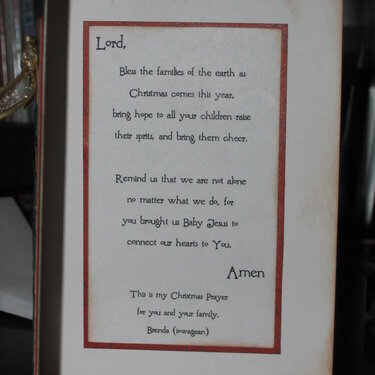 Lord,
Bless the families of the earth as
Christmas comes this year,
bring hope to all your children raise
their sprits, and bring them cheer.
Remind us that we are not alone
no matter what we do, for
you brought us Baby Jesus to
connect our hearts to You.
Amen
This is my Christmas Prayer
for you and your family.
Brenda (iowagean)